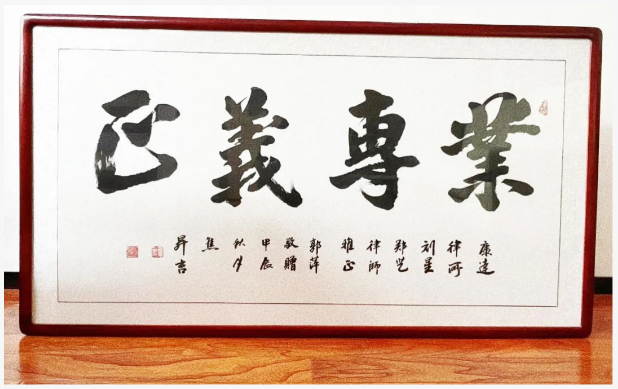 正義專業
康達
律所
刘星
郑艺
律師
雅正
郭萍
敬贈
甲辰
秋月
焦
昇吉